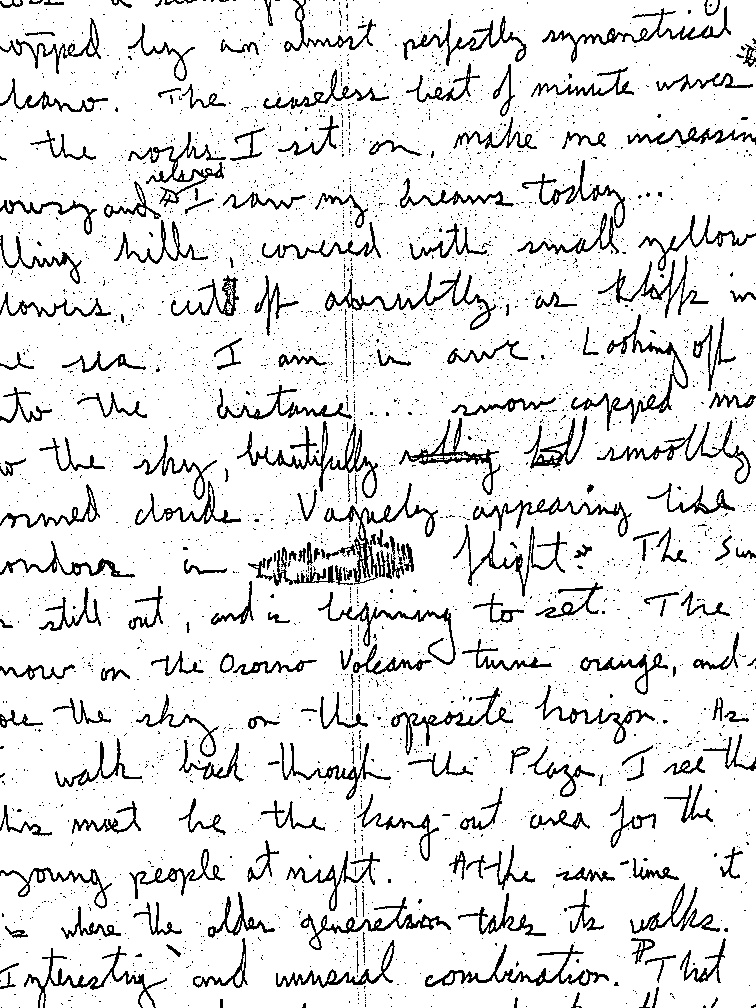 opped by an almost perfectly symmetrical
lcano. The ceaseless beat of minute waves
the rocks I sit on, make me increasin
relaxed
owsy and I saw my dreams today...
lling hills, covered with small yellow
lowers, cut off abrubtly, as kliffs in
e sea. I am in awe. Looking off
nto the distance... snow capped mo
w the sky, beautifully rolling hill smoothly
ormed clouds. Vaguely appearing like
ondors in flight. The Sun
s still out, and is beginning to set. The
now on the Osorno Volcano turns orange, and
oes the sky on the opposite horizon. As
I walk back through the Plaza, I see tha
his must be the hang-out area for the
young people at night. At the same time it
is where the older generation takes its walks.
Interesting and unusual combination. That